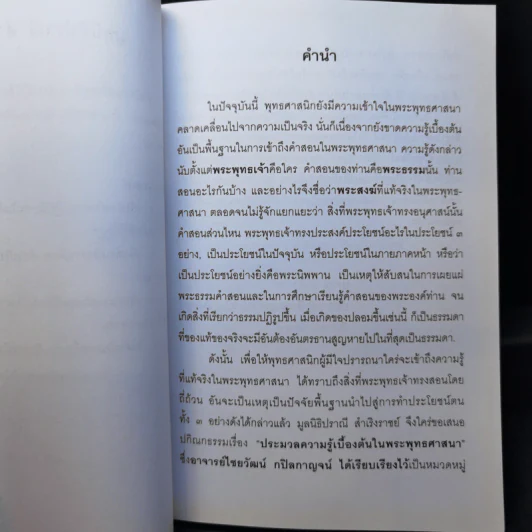 คำนำ
ในปัจจุบันนี้ พุทธศาสนิกยังมีความเข้าใจในพระพุทธศาสนา
คลาดเคลื่อนไปจากความเป็นจริง นั่นก็เนื่องจากยังขาดความรู้เบื้องต้น
อันเป็นพื้นฐานในการเข้าถึงคำสอนในพระพุทธศาสนา ความรู้ดังกล่าว
นับตั้งแต่พระพุทธเจ้าคือใคร คำสอนของท่านคือพระธรรมนั้น ท่าน
สอนอะไรกันบ้าง และอย่างไรจึงชื่อว่าพระสงฆ์ที่แท้จริงในพระพุทธ-
ศาสนา ตลอดจนไม่รู้จักแยกแยะว่า สิ่งที่พระพุทธเจ้าทรงอนุศาสน์นั้น
คำสอนส่วนไหน พระพุทธเจ้าทรงประสงค์ประโยชน์อะไรในประโยชน์ ๓
อย่าง, เป็นประโยชน์ในปัจจุบัน หรือประโยชน์ในภายภาคหน้า หรือว่า
เป็นประโยชน์อย่างยิ่งคือพระนิพพาน เป็นเหตุให้สับสนในการเผยแผ่
พระธรรมคำสอนและในการศึกษาเรียนรู้คำสอนของพระองค์ท่าน จน
เกิดสิ่งที่เรียกว่าธรรมปฏิรูปขึ้น เมื่อเกิดของปลอมขึ้นเช่นนี้ ก็เป็นธรรมดา
ที่ของแท้ของจริงจะมีอันต้องอันตรธานสูญหายไปในที่สุดเป็นธรรมดา
ดังนั้น เพื่อให้พุทธศาสนิกผู้มีใจปรารถนาใคร่จะเข้าถึงความรู้
ที่แท้จริงในพระพุทธศาสนา ได้ทราบถึงสิ่งที่พระพุทธเจ้าทรงสอนโดย
ถี่ถ้วน อันจะเป็นเหตุเป็นปัจจัยพื้นฐานนำไปสู่การทำประโยชน์ตน
ทั้ง ๓ อย่างดังได้กล่าวแล้ว มูลนิธิปราณี สำเริงราชย์ จึงใคร่ขอเสนอ
ปกิณกธรรมเรื่อง "ประมวลความรู้เบื้องต้นในพระพุทธศาสนา"
ซึ่งอาจารย์ไชยวัฒน์ กปิลกาญจน์ ได้เรียบเรียงไว้เป็นหมวดหมู่